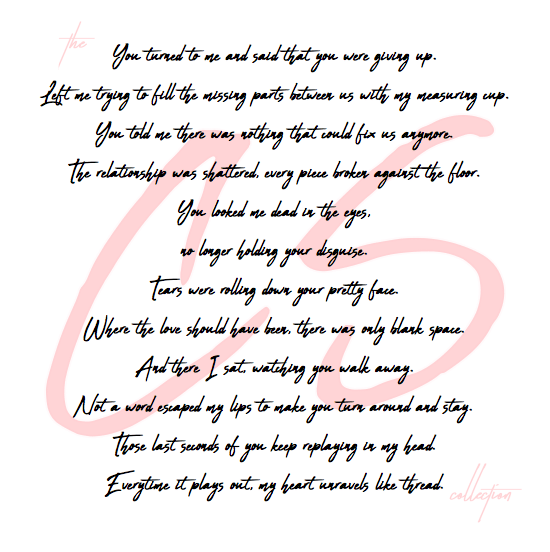 the
You turned to me and said that you were giving up.
Left me trying to fill the missing parts between us with my measuring cup.
You told me there was nothing that could fix us anymore.
The relationship was shattered, every piece broken against the floor.
You looked me dead in the eyes,
no longer holding your disguise.
Tears were rolling down your pretty face.
Where the love should have been, there was only blank space.
And there I sat, watching you walk away.
Not a word escaped my lips to make you turn around and stay.
Those last seconds of you keep replaying in my head.
Everytime it plays out, my heart unravels like thread.
CS
collection